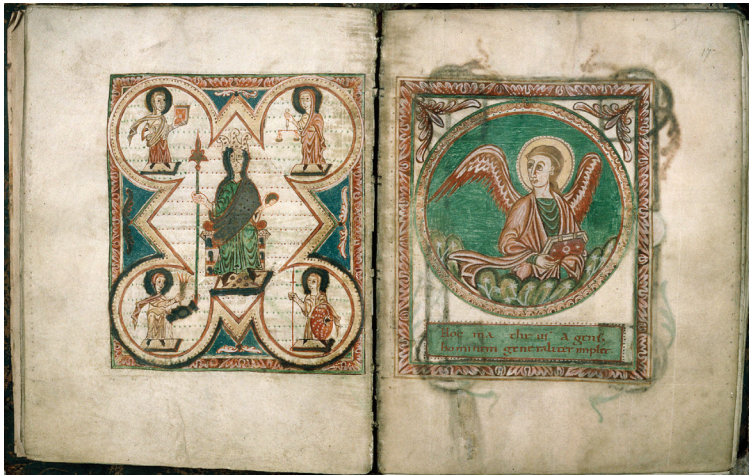 17
Hoc ma the us a gens,
hominem generaliter implet